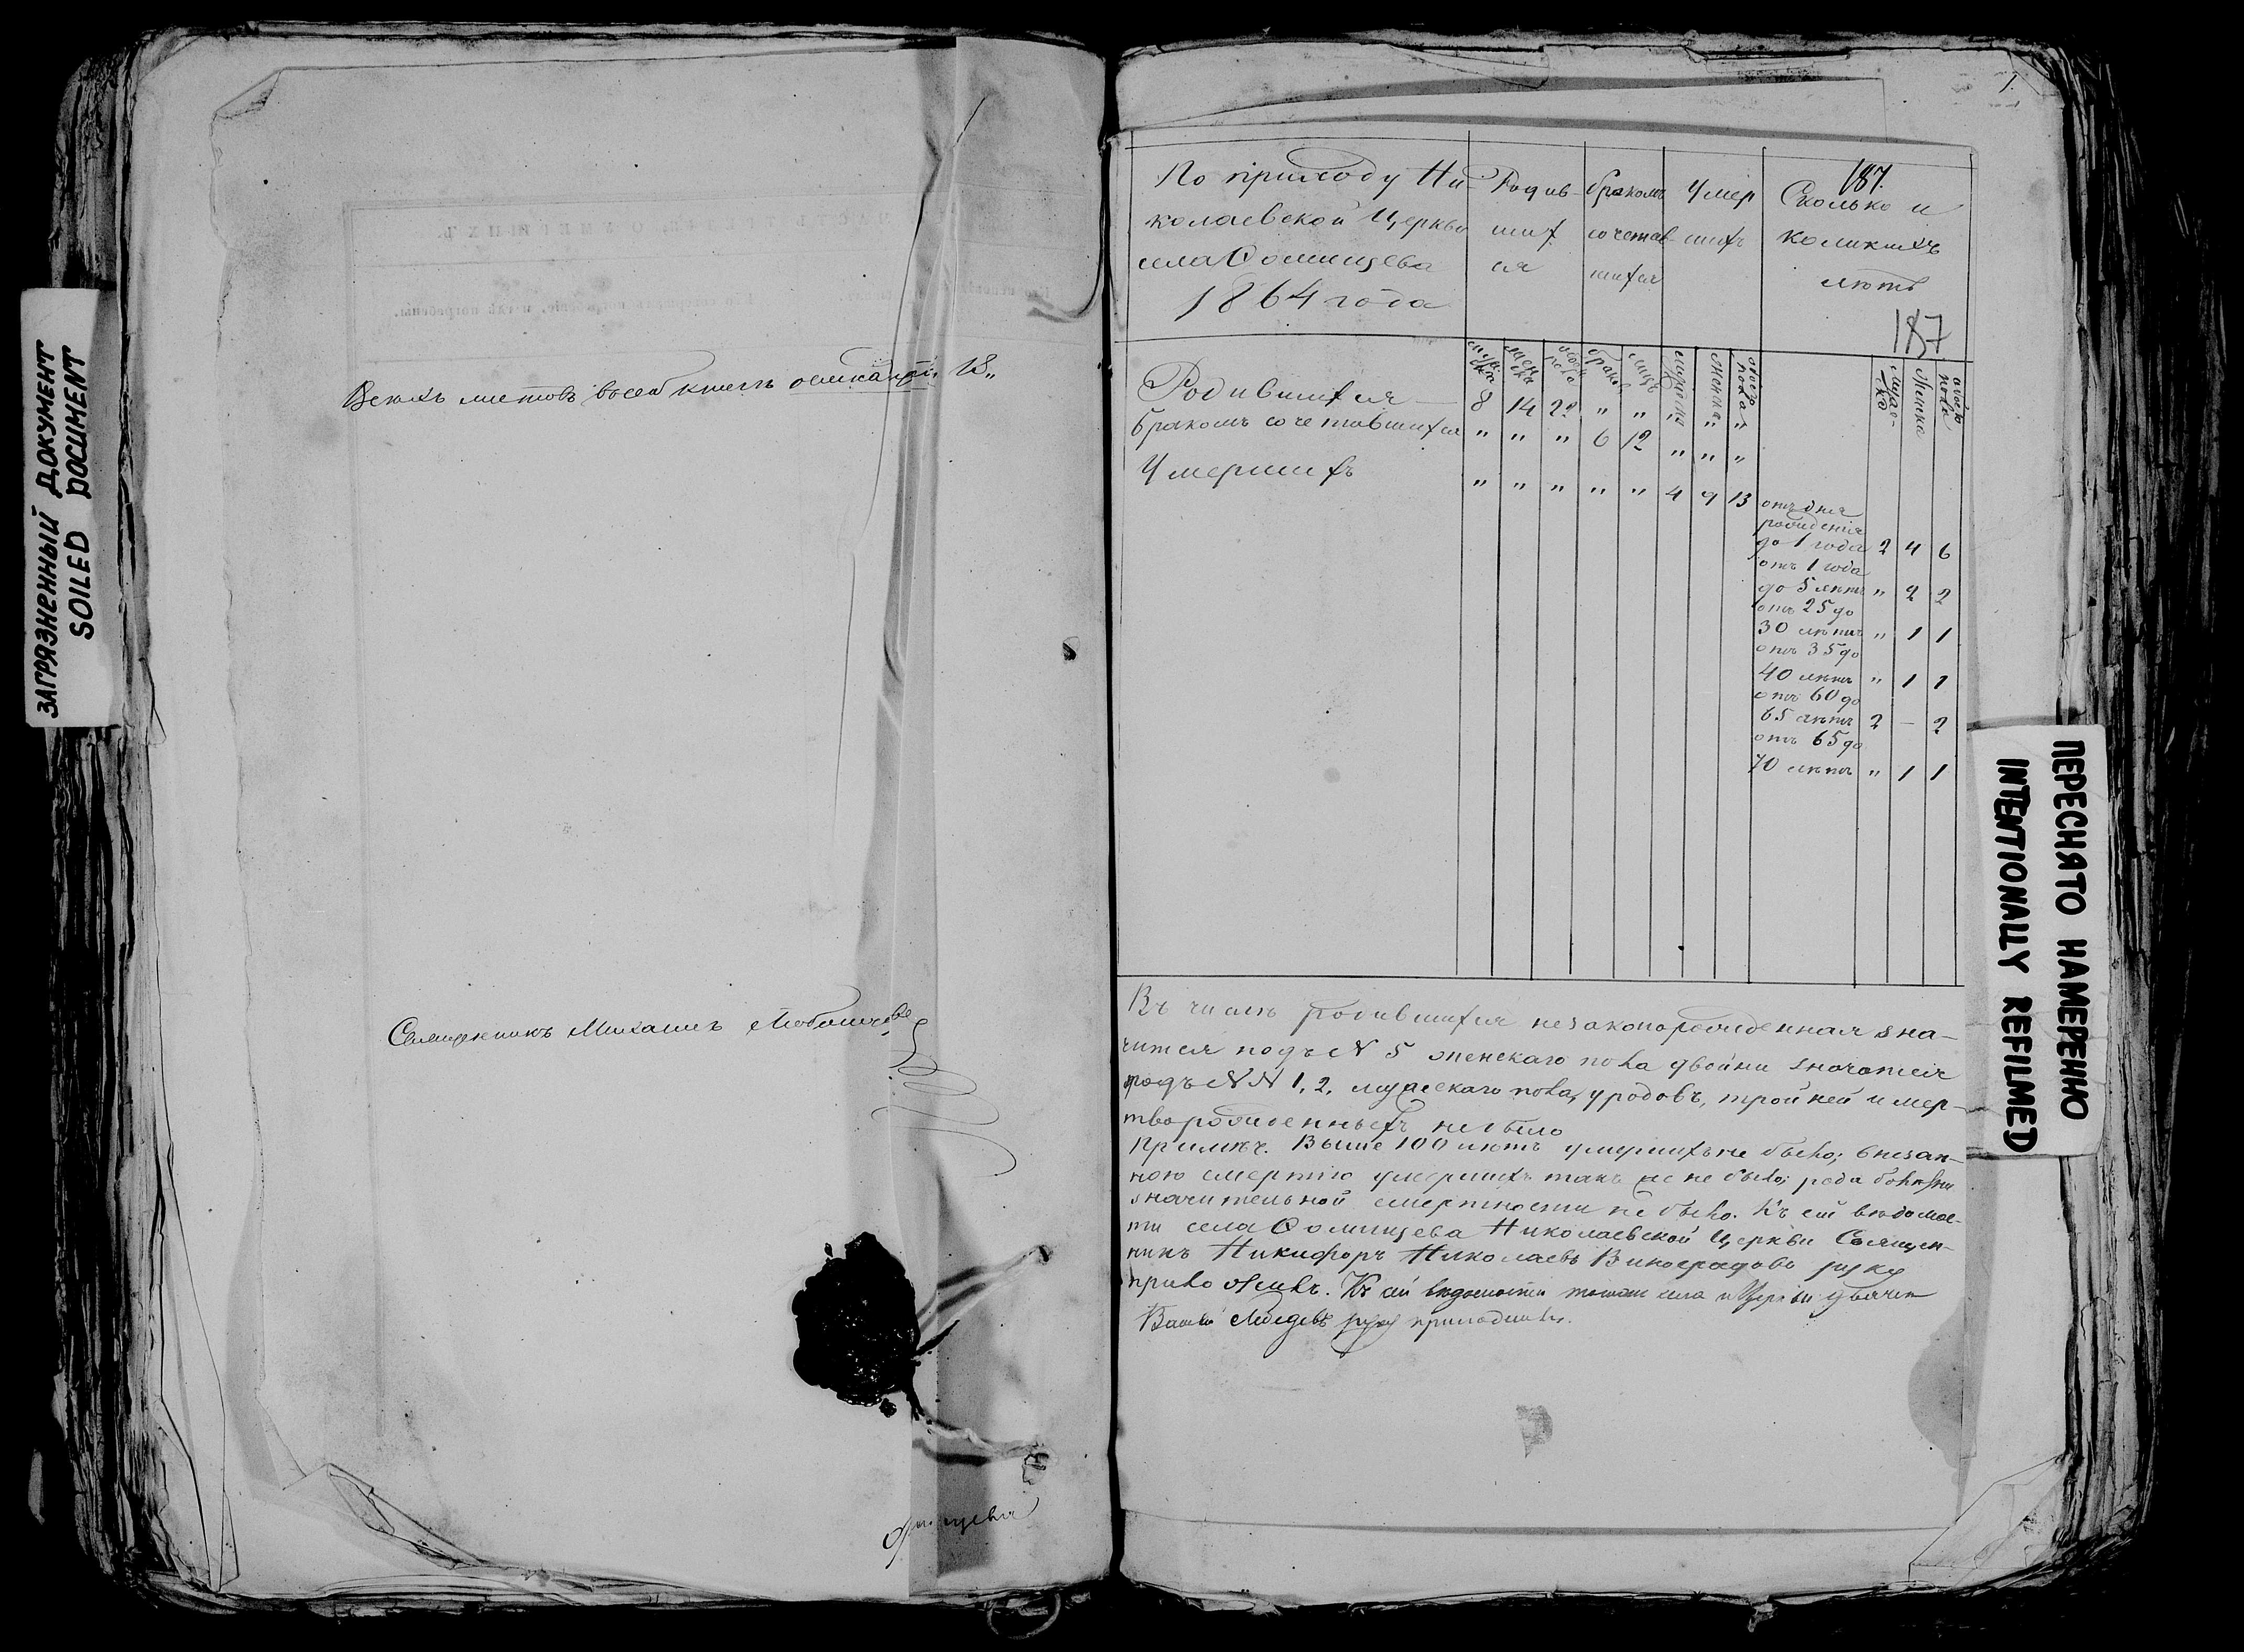 ЗАГРЯЗНЕННЫЙ ДОКУМЕНТ
SOILED DOCUMENT
Всѣхъ листовъ въ сей книгѣ осмнадцать 18„
Священникъ Михаилъ
1.
По приходу Ни-
колаевской Церкви
села Фоминцева
1864 года
Родив-
ших
ся
бракомъ
сочетав-
шихся
Умер
шихъ
187.
Сколько и
коликихъ
лѣтъ
187
мужска
женска
обоего пола
браковъ
лицъ
мужска
женска
обоего пола
мужска
женска
обоего пола
Родившихся 8 14 22 „ „ „ „ „
бракомъ сочетавшихся „ „ „ 6 12 „ „ „
Умершихъ „ „ „ „ „ 4 9 13
отъ дня
рожденія
до 1 года 2 4 6
отъ 1 года
до 5 лѣтъ „ 2 2
отъ 25 до
30 лѣтъ „ 1 1
отъ 35 до
40 лѣтъ „ 1 1
отъ 60 до
65 лѣтъ 2 — 2
отъ 65 до
70 лѣтъ „ 1 1
Въ числѣ родившихся незаконорожденная зна-
чится подъ N 5 женскаго пола двойни значатся
подъ NN 1, 2, мужескаго пола, уродовъ, тройней и мер-
творожденныхъ не было
Примѣч. Выше 100 лѣтъ умершихъ не было; внезап-
ною смертію умершихъ такъ же не было; рода болѣзни
значительной смертности не было. Къ сей вѣдомос-
ти села Фоминцева Николаевской Церкви Священ-
никъ Никифоръ Николаевъ Виноградовъ руку
приложилъ. Къ сей вѣдомости тогожъ села и Церкви дьячекъ
Лебедевъ руку приложилъ.
ПЕРЕСНЯТО НАМЕРЕННО
INTENTIONALLY REFILMED